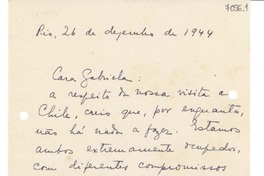 7096.1
Rio, 26 de dezembro de 1944
Cara Gabriela:
a respeito da nossa visita ao
Chile, creio que, por enquanto,
não há nada a fazer. Estamos
ambos extremamente ocupados,
com diferentes compromissos